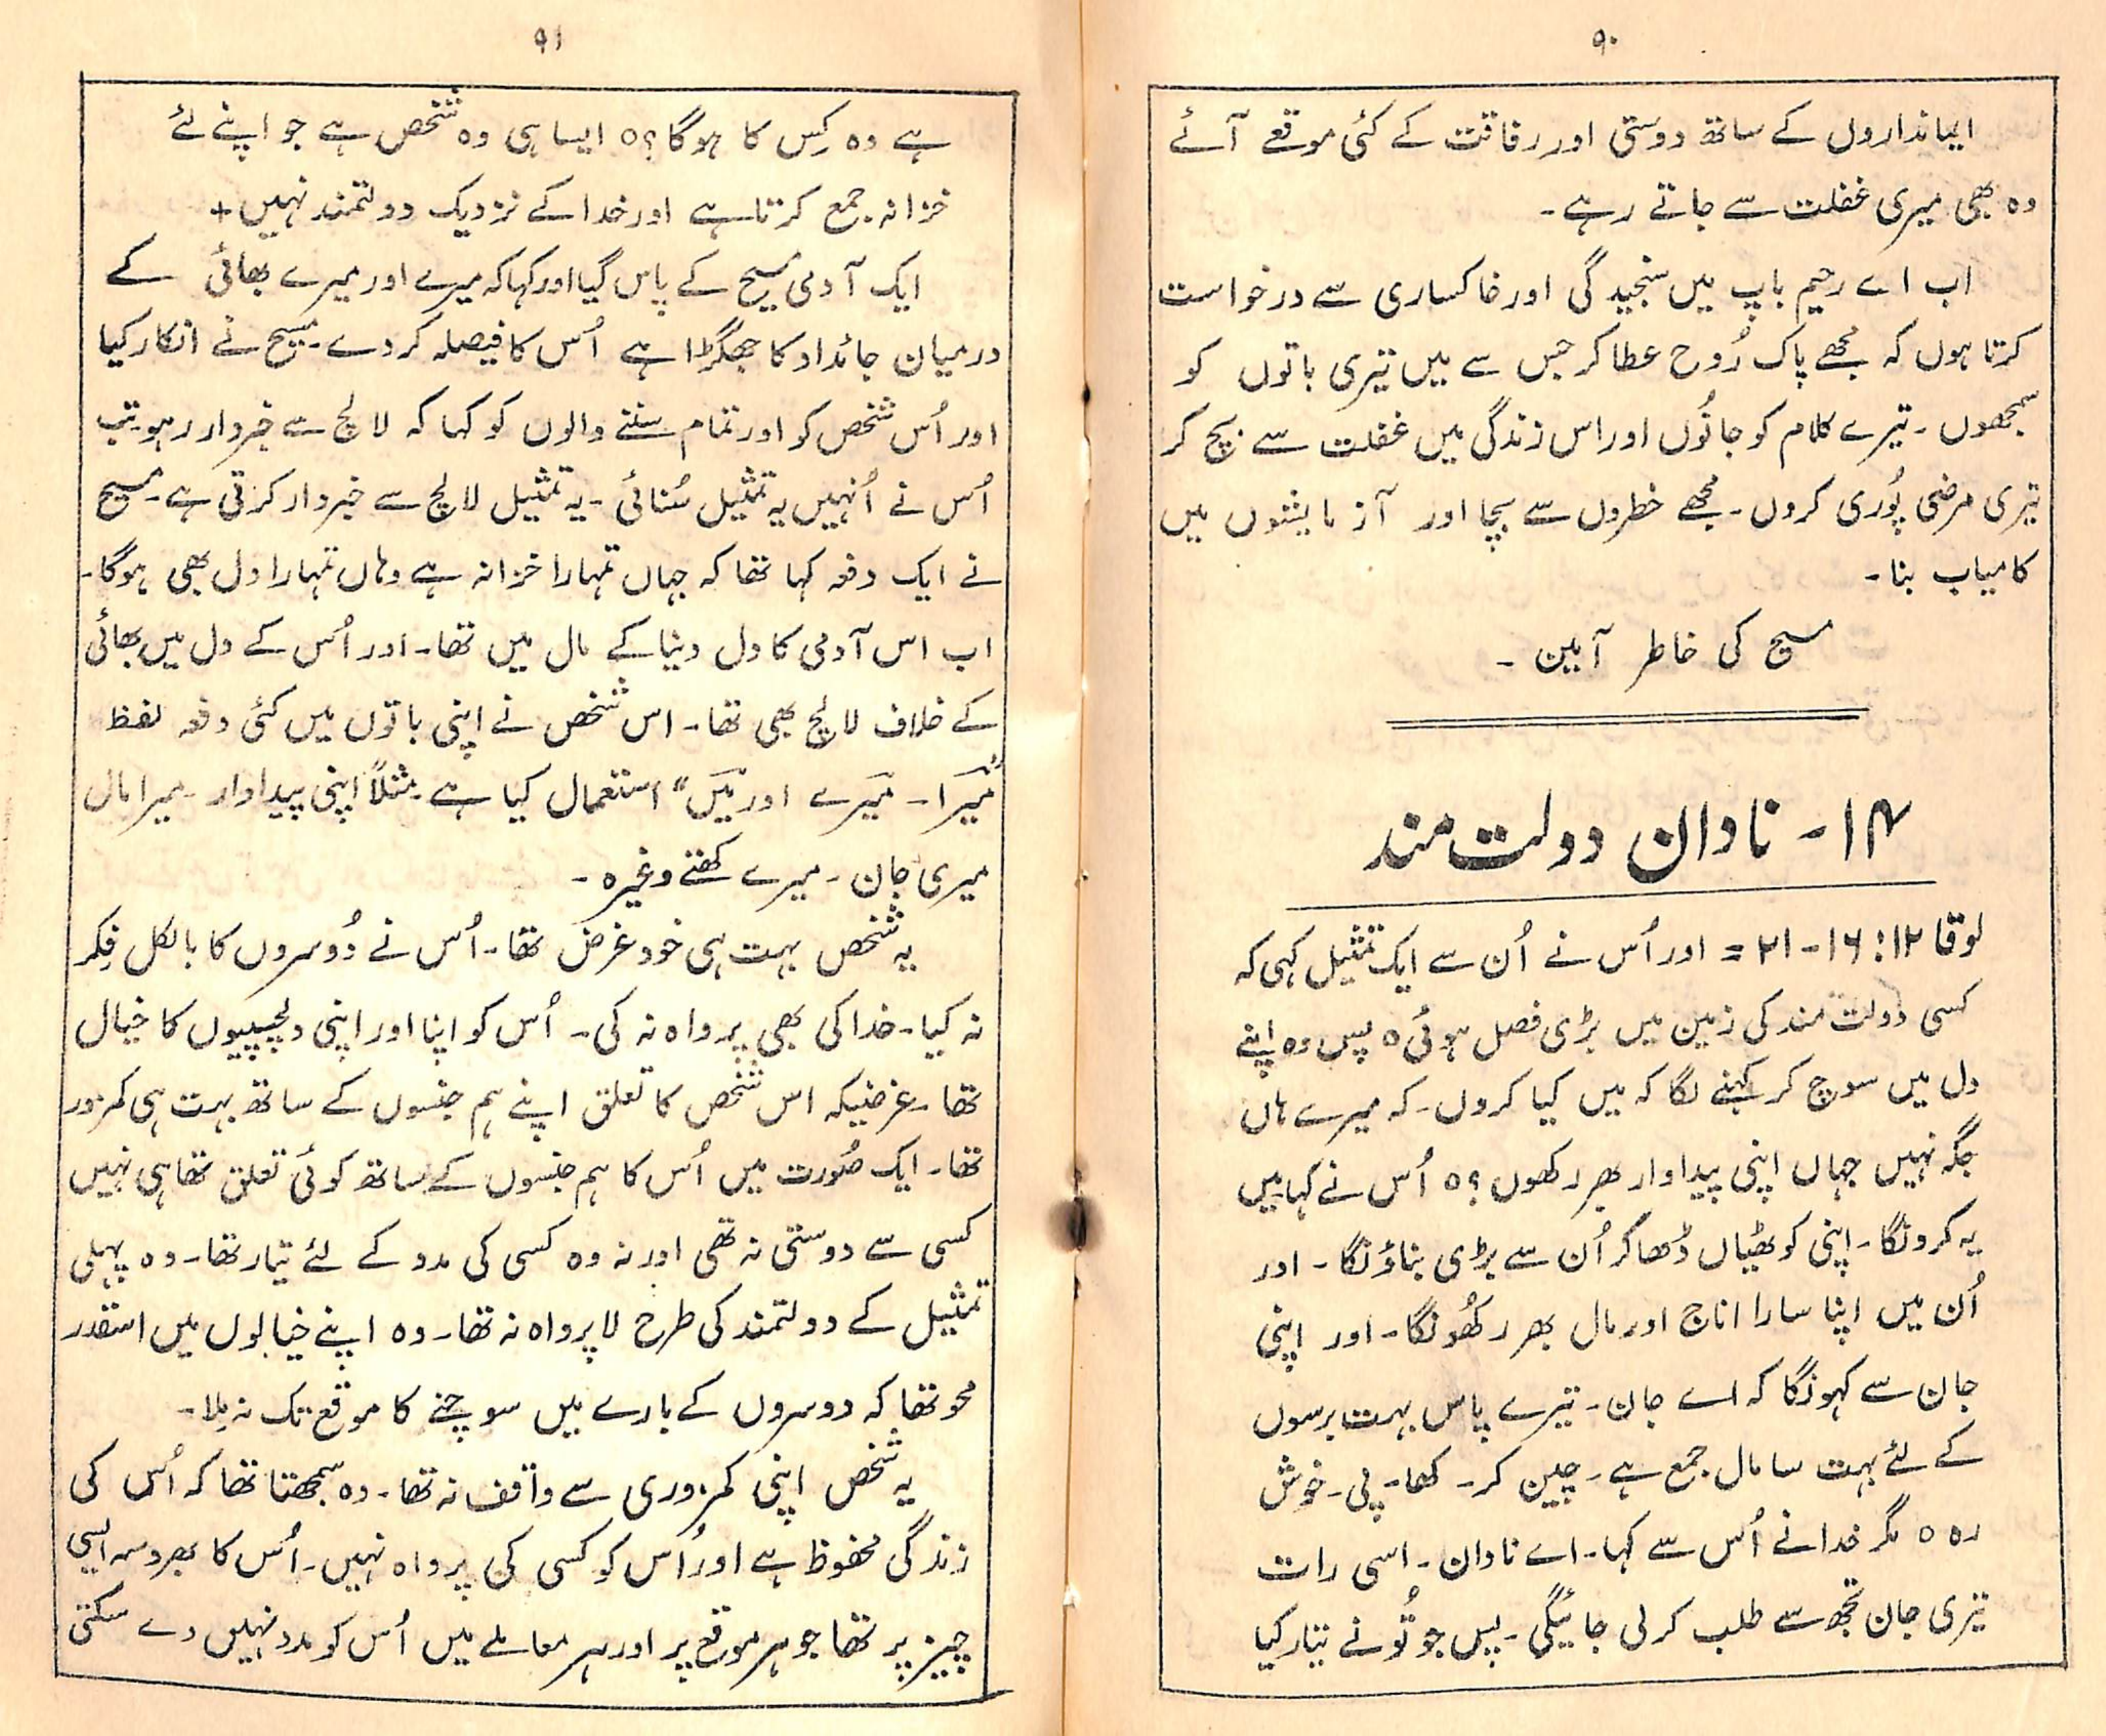 ۹۰
ایمانداروں کے ساتھ دوستی اور رفاقت کے کئی موقعے آئے
وہ بھی میری غفلت سے جاتے رہے۔
اب اے رحیم باپ میں سنجیدگی اور خاکساری سے درخواست
کرتا ہوں کہ مجھے پاک رُوح عطا کر جس سے میں تیری باتوں کو
سمجھوں۔ تیرے کلام کو جانُوں اور اس زندگی میں غفلت سے بچ کر
تیری مرضی پُوری کروں۔ مجھے خطروں سے بچا اور آزمایشوں میں
کامیاب بنا۔
مسیح کی خاطر آمین۔
۱۴۔ نادان دولت مند
لوقا ۱۲: ۱۶۔۲۱ = اور اُس نے اُن سے ایک تمثیل کہی کہ
کسی دولت مند کی زمین میں بڑی فصل ہوئی ○ پس وہ اپنے
دل میں سوچ کر کہنے لگا کہ میں کیا کروں۔ کہ میرے ہاں
جگہ نہیں جہاں اپنی پیداوار بھر رکھوں؟ ○ اُس نے کہا میں
یہ کرونگا۔ اپنی کوٹھیاں ڈھا کر اُن سے بڑی بناؤنگا۔ اور
اُن میں اپنا سارا اناج اور مال بھر رکھُونگا۔ اور اپنی
جان سے کہونگا کہ اے جان۔ تیرے پاس بہت برسوں
کے لئے بہت سا مال جمع ہے۔ چین کر۔ کھا۔ پی۔ خوش
رہ ○ مگر خدا نے اُس سے کہا۔ اے نادان۔ اسی رات
تیری جان تجھ سے طلب کر لی جائیگی۔ پس جو تُو نے تیار کیا
۹۱
ہے وہ کِس کا ہوگا؟ ○ ایسا ہی وہ شخص ہے جو اپنے لئے
خزانہ جمع کرتا ہے اور خدا کے نزدیک دولتمند نہیں +
ایک آدمی مسیح کے پاس گیا اور کہا کہ میرے اور میرے بھائی کے
درمیان جائداد کا جھگڑا ہے اُس کا فیصلہ کر دے۔ مسیح نے انکار کیا
اور اُس شخص کو اور تمام سننے والوں کو کہا کہ لالچ سے خبردار رہو۔ تب
اُس نے اُنہیں یہ تمثیل سُنائی۔ یہ تمثیل لالچ سے خبردار کرتی ہے۔ مسیح
نے ایک دفعہ کہا تھا کہ جہاں تمہارا خزانہ ہے وہاں تمہارا دل بھی ہوگا۔
اب اس آدمی کا دل دنیا کے مال میں تھا۔ اور اُس کے دل میں بھائی
کے خلاف لالچ بھی تھا۔ اس شخص نے اپنی باتوں میں کئی دفعہ لفظ
"میَرا۔ میَرے اور میَں" استعمال کیا ہے۔ مثلاً اپنی پیداوار۔ میرا مال
میری جان۔ میرے کھتے وغیرہ۔
یہ شخص بہت ہی خود غرض تھا۔ اُس نے دُوسروں کا بالکل فِکر
نہ کیا۔ خدا کی بھی پرواہ نہ کی۔ اُس کو اپنا اور اپنی دلچسپیوں کا خیال
تھا۔ غرضیکہ اس شخص کا تعلق اپنے ہم جنسوں کے ساتھ بہت ہی کمزور
تھا۔ ایک صُورت میں اُس کا ہم جنسوں کے ساتھ کوئی تعلق تھا ہی نہیں
کسی سے دوستی نہ تھی اور نہ وہ کسی کی مدد کے لئے تیار تھا۔ وہ پہلی
تمثیل کے دولتمند کی طرح لاپرواہ نہ تھا۔ وہ اپنے خیالوں میں اسقدر
محو تھا کہ دوسروں کے بارے میں سوچنے کا موقع تک نہ مِلا۔
یہ شخص اپنی کمزوری سے واقف نہ تھا۔ وہ سمجھتا تھا کہ اُس کی
زندگی محفوظ ہے اور اُس کو کسی کی پرواہ نہیں۔ اُس کا بھروسہ ایسی
چیز پر تھا جو ہر موقع پر اور ہر معاملے میں اُس کو مدد نہیں دے سکتی